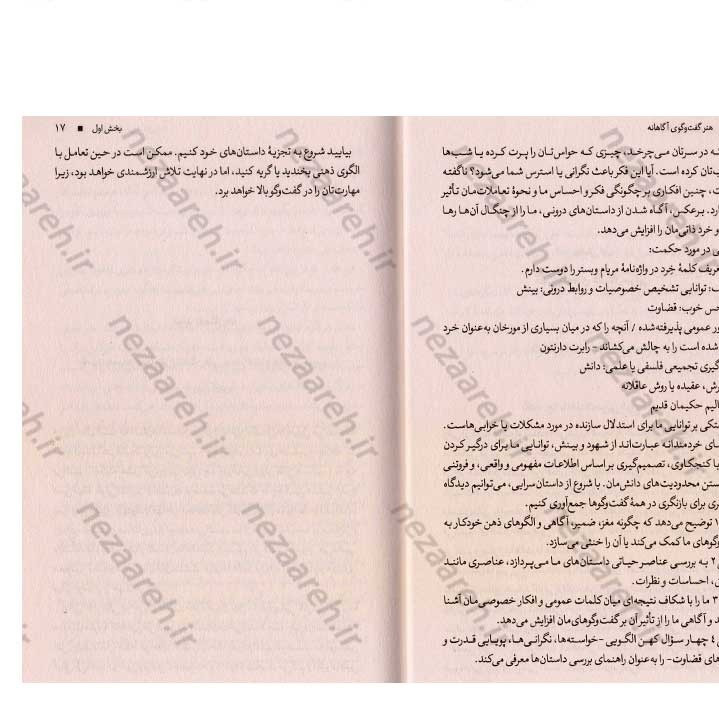 هنر گفت‌وگوی آگاهانه
در سرتان می‌چرخد، چیزی که حواس‌تان را پرت کرده یا شب‌ها
کرده است. آیا این فکر باعث نگرانی یا استرس شما می‌شود؟ ناگفته
چنین افکاری بر چگونگی فکر و احساس ما و نحوهٔ تعاملات‌مان تأثیر
برعکس، آگاه شدن از داستان‌های درونی، ما را از چنگال آن‌ها رها
و خرد ذاتی‌مان را افزایش می‌دهد.
در مورد حکمت:
کلمهٔ خِرد در واژه‌نامهٔ مریام وبستر را دوست دارم.
توانایی تشخیص خصوصیات و روابط درونی: بینش
حس خوب: قضاوت
عمومی پذیرفته‌شده / آنچه را که در میان بسیاری از مورخان به‌عنوان خرد
شده است را به چالش می‌کشاند - رابرت دارنتون
تجمیعی فلسفی یا علمی: دانش
عقیده یا روش عاقلانه
حکیمان قدیم
بر توانایی ما برای استدلال سازنده در مورد مشکلات یا خرابی‌هاست.
خردمندانه عبارت‌اند از شهود و بینش، توانایی ما برای درگیر کردن
با کنجکاوی، تصمیم‌گیری بر اساس اطلاعات مفهومی و واقعی، و فروتنی
محدودیت‌های دانش‌مان. با شروع از داستان‌سرایی، می‌توانیم دیدگاه
برای بازنگری در همهٔ گفت‌وگوها جمع‌آوری کنیم.
۱ توضیح می‌دهد که چگونه مغز، ضمیر، آگاهی و الگوهای ذهن خودکار به
ما کمک می‌کند یا آن را خنثی می‌سازد.
۲ به بررسی عناصر حیاتی داستان‌های ما می‌پردازد، عناصری مانند
احساسات و نظرات.
۳ ما را با شکاف نتیجه‌ای میان کلمات عمومی و افکار خصوصی‌مان آشنا
و آگاهی ما را از تأثیر آن بر گفت‌وگوهای‌مان افزایش می‌دهد.
۴ چهار سؤال کهن الگویی -خواسته‌ها، نگرانی‌ها، پویایی قدرت و
قضاوت- را به‌عنوان راهنمای بررسی داستان‌ها معرفی می‌کند.
بخش اول ■ ۱۷
بیایید شروع به تجزیهٔ داستان‌های خود کنیم. ممکن است در حین تعامل با
الگوی ذهنی بخندید یا گریه کنید، اما در نهایت تلاش ارزشمندی خواهد بود، زیرا
مهارت‌تان را در گفت‌وگو بالا خواهد برد.
nezaareh.ir
nezaareh.ir
nezaareh.ir
nezaareh.ir
nezaareh.ir
nezaareh.ir
nezaareh.ir
nezaareh.ir
nezaareh.ir